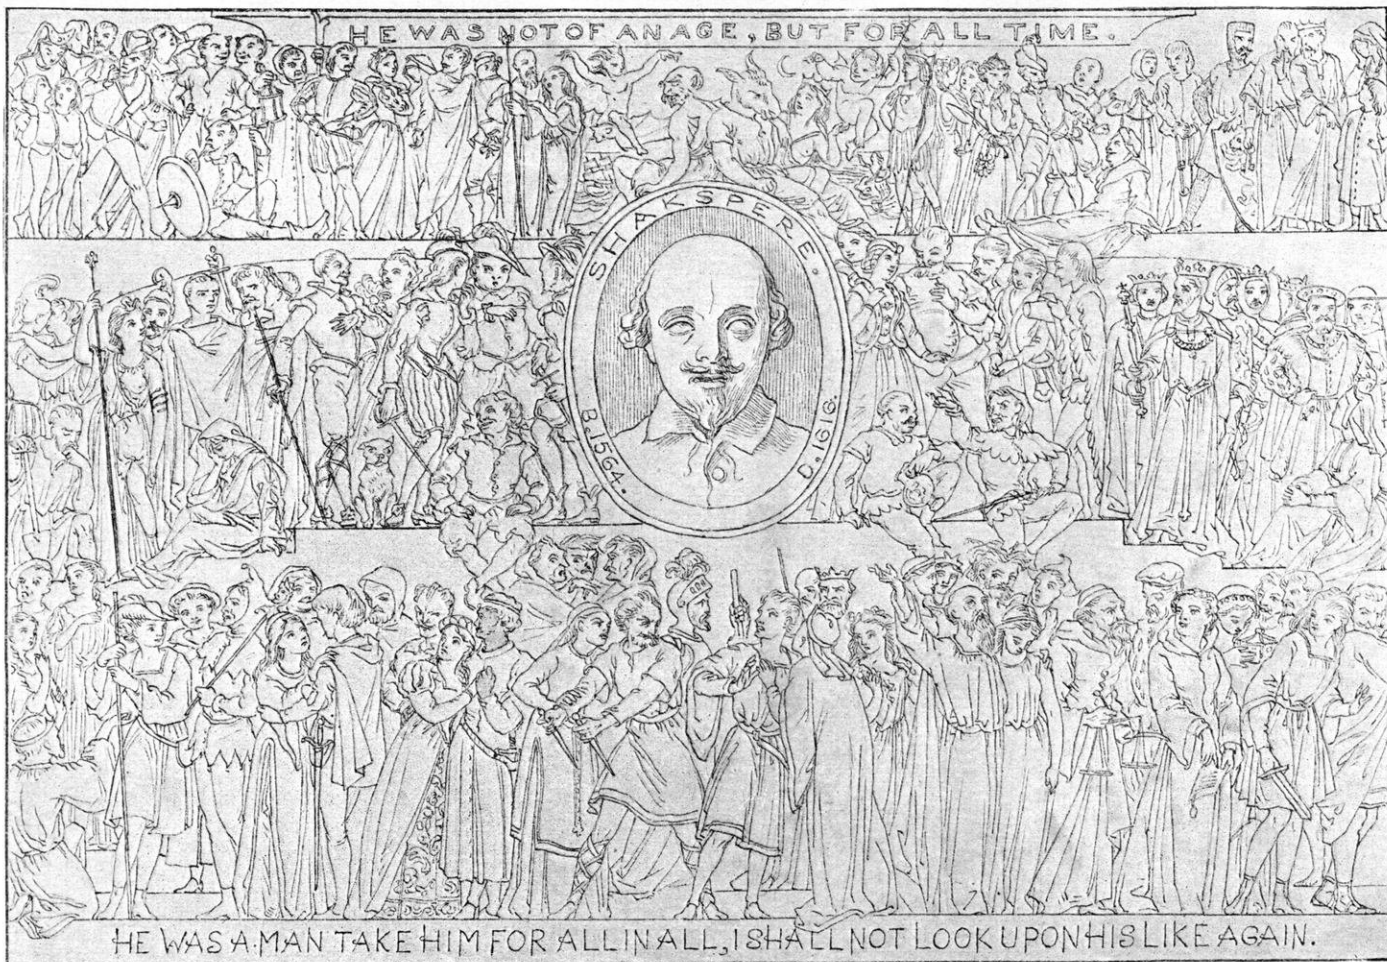 HE WAS NOT OF AN AGE, BUT FOR ALL TIME.
SHAKSPERE.
B. 1564.
D. 1616.
HE WAS A·MAN TAKE HIM FOR ALL IN ALL, I SHALL NOT LOOK UPON HIS LIKE AGAIN.